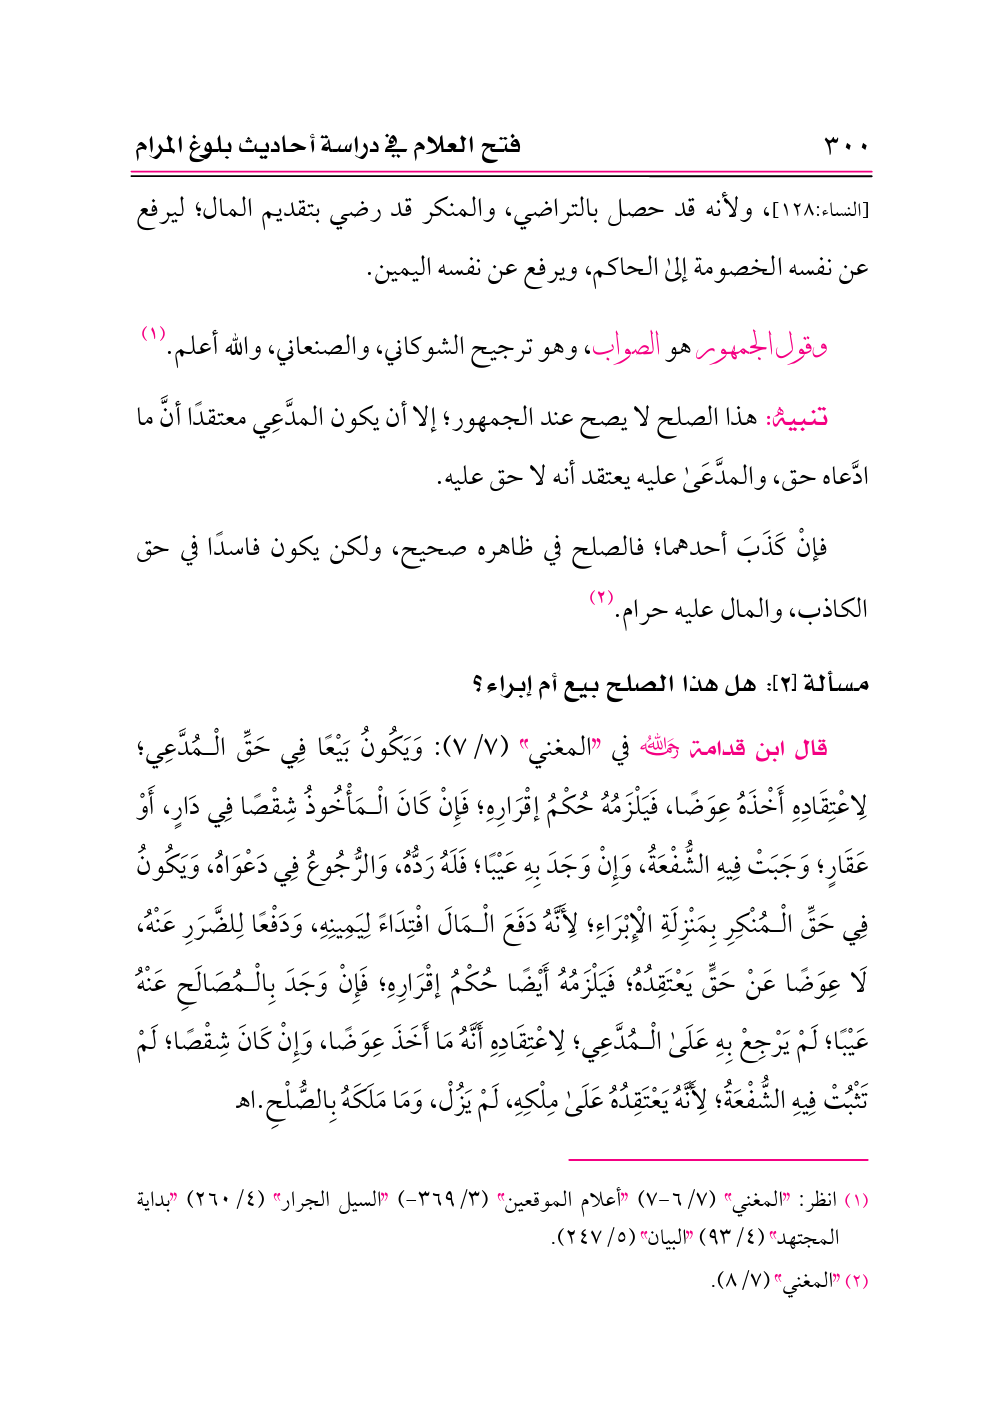 ٣٠٠ فتح العلام في دراسة أحاديث بلوغ المرام
[النساء:١٢٨]، ولأنه قد حصل بالتراضي، والمنكر قد رضي بتقديم المال؛ ليرفع
عن نفسه الخصومة إلىٰ الحاكم، ويرفع عن نفسه اليمين.
وقول الجمهور هو الصواب، وهو ترجيح الشوكاني، والصنعاني، والله أعلم.(١)
تنبيهٌ: هذا الصلح لا يصح عند الجمهور؛ إلا أن يكون المدَّعِي معتقدًا أنَّ ما
ادَّعاه حق، والمدَّعَىٰ عليه يعتقد أنه لا حق عليه.
فإنْ كَذَبَ أحدهما؛ فالصلح في ظاهره صحيح، ولكن يكون فاسدًا في حق
الكاذب، والمال عليه حرام.(٢)
مسألة [٢]: هل هذا الصلح بيع أم إبراء؟
قال ابن قدامة رحمه الله في "المغني" (٧/ ٧): وَيَكُونُ بَيْعًا فِي حَقِّ الْـمُدَّعِي؛
لِاعْتِقَادِهِ أَخْذَهُ عِوَضًا، فَيَلْزَمُهُ حُكْمُ إقْرَارِهِ؛ فَإِنْ كَانَ الْـمَأْخُوذُ شِقْصًا فِي دَارٍ، أَوْ
عَقَارٍ؛ وَجَبَتْ فِيهِ الشُّفْعَةُ، وَإِنْ وَجَدَ بِهِ عَيْبًا؛ فَلَهُ رَدُّهُ، وَالرُّجُوعُ فِي دَعْوَاهُ، وَيَكُونُ
فِي حَقِّ الْـمُنْكِرِ بِمَنْزِلَةِ الْإِبْرَاءِ؛ لِأَنَّهُ دَفَعَ الْـمَالَ افْتِدَاءً لِيَمِينِهِ، وَدَفْعًا لِلضَّرَرِ عَنْهُ،
لَا عِوَضًا عَنْ حَقٍّ يَعْتَقِدُهُ؛ فَيَلْزَمُهُ أَيْضًا حُكْمُ إقْرَارِهِ؛ فَإِنْ وَجَدَ بِالْـمُصَالَحِ عَنْهُ
عَيْبًا؛ لَمْ يَرْجِعْ بِهِ عَلَىٰ الْـمُدَّعِي؛ لِاعْتِقَادِهِ أَنَّهُ مَا أَخَذَ عِوَضًا، وَإِنْ كَانَ شِقْصًا؛ لَمْ
تَثْبُتْ فِيهِ الشُّفْعَةُ؛ لِأَنَّهُ يَعْتَقِدُهُ عَلَىٰ مِلْكِهِ، لَمْ يَزُلْ، وَمَا مَلَكَهُ بِالصُّلْحِ.اهـ
(١) انظر: "المغني" (٧/ ٦-٧) "أعلام الموقعين" (٣/ ٣٦٩-) "السيل الجرار" (٤/ ٢٦٠) "بداية
المجتهد" (٤/ ٩٣) "البيان" (٥/ ٢٤٧).
(٢) "المغني" (٧/ ٨).